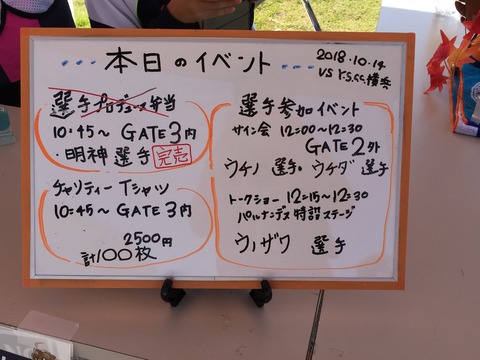 本日のイベント
2018.10.14
VS Y.S.C.C.横浜
選手プロデュース弁当
10:45〜 GATE 3内
・明神選手 完売
チャリティーTシャツ
10:45〜 GATE 3内
2500円
計100枚
選手参加イベント
サイン会 12:00〜12:30
GATE 2外
ウチノ 選手・ウチダ 選手
トークショー 12:15〜12:30
パルナンデス特設ステージ
ウノザワ 選手